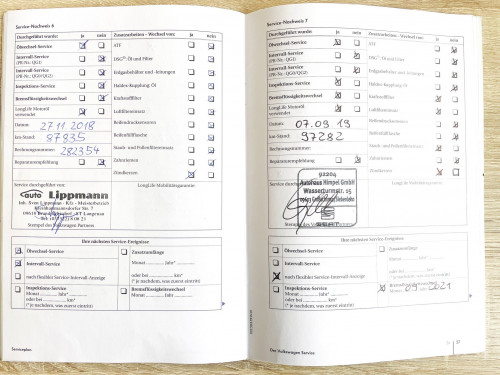 Service-Nachweis 6
Durchgeführt wurde: ja nein
Zusatzarbeiten – Wechsel von: ja nein
Ölwechsel-Service
ATF
Intervall-Service
(PR-Nr.: QG1)
DSG®-Öl und Filter
Intervall-Service
(PR-Nr.: QG0/QG2)
Erdgasbehälter und -leitungen
Inspektions-Service
Haldex-Kupplung-Öl
Bremsflüssigkeitswechsel
Kraftstofffilter
LongLife Motoröl
verwendet
Luftfiltereinsatz
Datum: 27.11.2018
Reifendruckensoren
km-Stand: 87835
Reifenfüllflasche
Rechnungsnummer: 282354
Staub- und Pollenfiltereinsatz
Reparaturempfehlung
Zahnriemen
Zündkerzen
Service durchgeführt von:
LongLife Mobilitätsgarantie:
auto Lippmann
Inh. Sven Lippmann - Kfz-Meisterbetrieb
Stempel des Volkswagen Partners
Ihre nächsten Service-Ereignisse
Ölwechsel-Service
Zusatzumfänge
Intervall-Service
Monat Jahr*
nach flexibler Service-Intervall-Anzeige
oder bei km*
(* je nachdem, was zuerst eintritt)
Inspektions-Service
Monat Jahr*
oder bei km*
(* je nachdem, was zuerst eintritt)
Bremsflüssigkeitswechsel
Monat Jahr
Serviceplan
Service-Nachweis 7
Durchgeführt wurde: ja nein
Zusatzarbeiten – Wechsel von: ja nein
Ölwechsel-Service
ATF
Intervall-Service
(PR-Nr.: QG1)
DSG®-Öl und Filter
Intervall-Service
(PR-Nr.: QG0/QG2)
Erdgasbehälter und -leitungen
Inspektions-Service
Haldex-Kupplung-Öl
Bremsflüssigkeitswechsel
Kraftstofffilter
LongLife Motoröl
verwendet
Luftfiltereinsatz
Datum: 07.09.19
Reifendrucksensoren
km-Stand: 97282
Reifenfüllflasche
Rechnungsnummer:
Staub- und Pollenfiltereinsatz
Reparaturempfehlung
Zahnriemen
Zündkerzen
Service durchgeführt von:
LongLife Mobilitätsgarantie:
92204
Autohaus Himpel GmbH
Wasserturmstr. 15
Stempel des Volkswagen Partners
Ihre nächsten Service-Ereignisse
Ölwechsel-Service
Zusatzumfänge
Intervall-Service
Monat Jahr*
nach flexibler Service-Intervall-Anzeige
oder bei km*
(* je nachdem, was zuerst eintritt)
Inspektions-Service
Monat Jahr*
oder bei km*
(* je nachdem, was zuerst eintritt)
Bremsflüssigkeitswechsel
Monat 09 Jahr 2021
Der Volkswagen Service
37